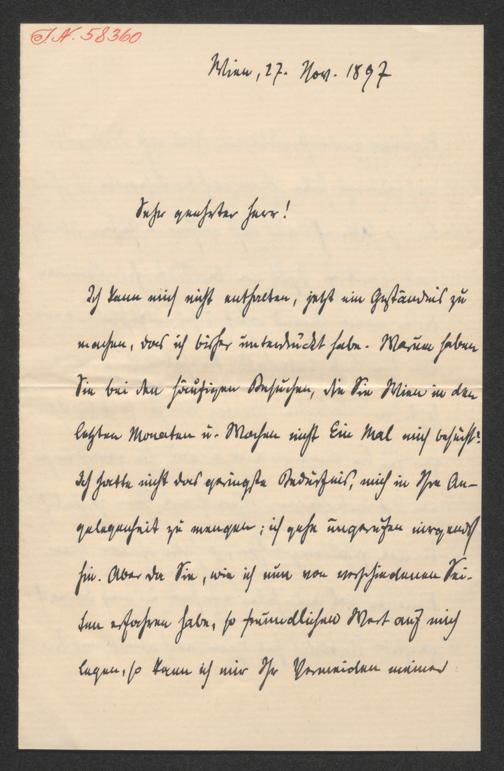 J.N. 58360
Wien, 27. Nov. 1897
Sehr geehrter Herr!
Ich kann mich nicht enthalten, jetzt ein Geständnis zu
machen, das ich bisher unterdrückt habe. Warum haben
Sie bei den häufigen Besuchen, die Sie Wien in den
letzten Monaten u. Wochen nicht Ein Mal mich besucht?
Ich hatte nicht das geringste Bedürfnis, mich in Ihre An-
gelegenheit zu mengen; ich gehe ungerufen nirgends
hin. Aber da Sie, wie ich nun von verschiedenen Sei-
ten erfahren habe, so freundlichen Wert auf mich
legen, so kann ich mir Ihr Vermeiden meiner